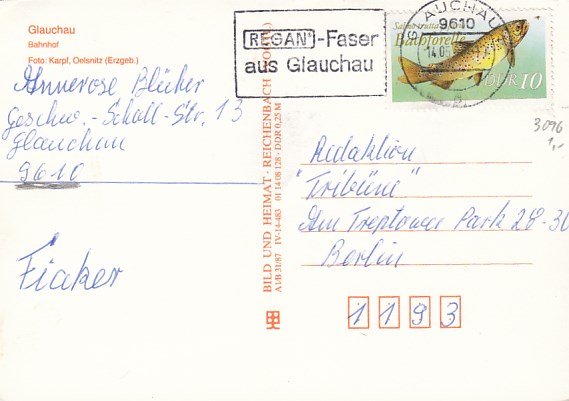 Glauchau
Bahnhof
Foto: Karpf, Oelsnitz (Erzgeb.)
Annerose Blücher
Geschw.-Scholl-Str. 13
Glauchau
9610
Fiaker
REGAN-Faser
aus Glauchau
GLAUCHAU
9610
14.05
Salmo trutta
Bachforelle
DDR 10
3096
1,-
BILD UND HEIMAT · REICHENBACH
A1/B 31/87 IV-14-483 01 14 08 128 · DDR 0,25 M
Redaktion
"Tribüne"
Am Treptower Park 28-30
Berlin
1193